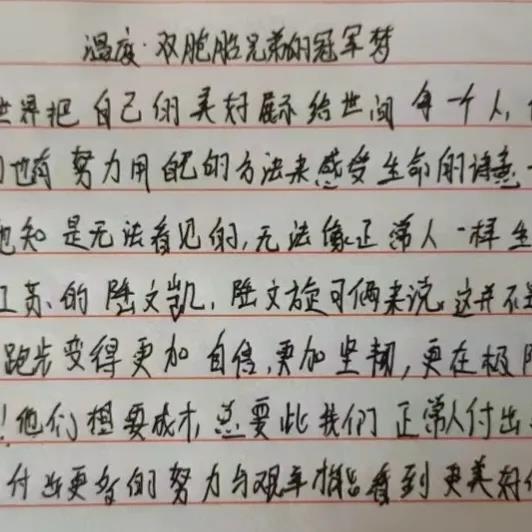 温度·双胞胎兄弟的冠军梦
世界把自己的美好展示给世间每一个人,
也有努力用自己的方法来感受生命的诗意
也知是无法看见的,无法像正常人一样生
江苏的陆文凯,陆文旋可俩来说,这并不是
跑步变得更加自信,更加坚韧,更在极限
!他们想要成才,总要比我们正常人付出
付出更多的努力与艰辛才能看到更美好的